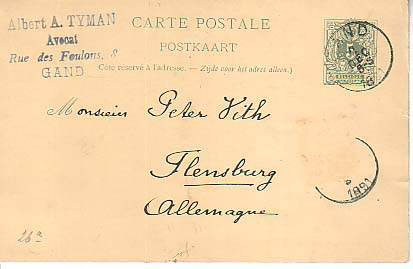 Albert A. TYMAN
Avocat
Rue des Foulons, 8
GAND
CARTE POSTALE
POSTKAART
Côté réservé à l'adresse. — Zijde voor het adres alleen.)
Monsieur Peter Vith
Flensburg
Allemagne
1891